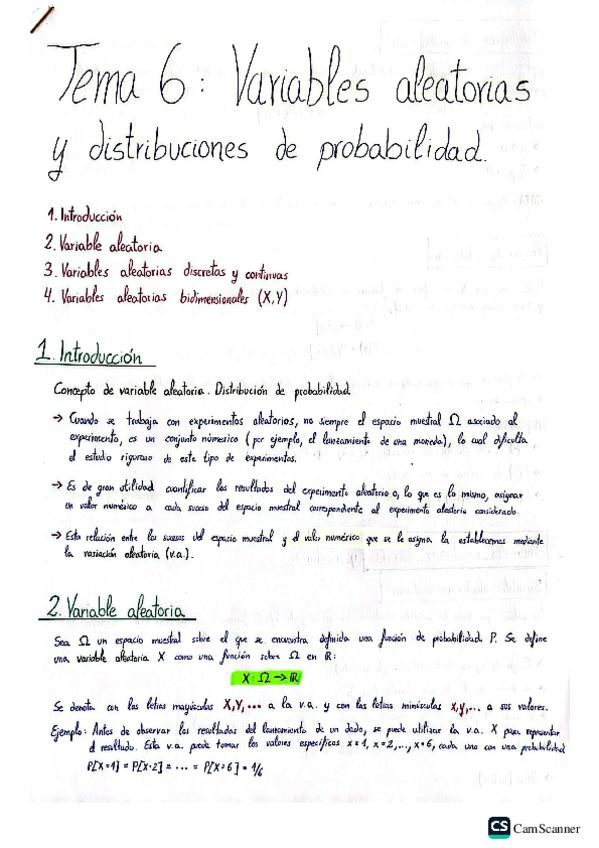 Tema 6: Variables aleatorias
y distribuciones de probabilidad.
1. Introducción
2. Variable aleatoria
3. Variables aleatorias discretas y continuas
4. Variables aleatorias bidimensionales (X,Y)
1. Introducción
Concepto de variable aleatoria. Distribución de probabilidad
→ Cuando se trabaja con experimentos aleatorios, no siempre el espacio muestral Ω asociado al
experimento, es un conjunto númerico (por ejemplo, el lanzamiento de una moneda), lo cual dificulta
el estudio riguroso de este tipo de experimentos.
→ Es de gran utilidad cuantificar los resultados del experimento aleatorio o, lo que es lo mismo, asignar
un valor numérico a cada suceso del espacio muestral correspondiente al experimento aleatorio considerado.
→ Esta relación entre los sucesos del espacio muestral y el valor numérico que se le asigna, la establecemos mediante
la variación aleatoria (v.a.).
2. Variable aleatoria
Sea Ω un espacio muestral sobre el que se encuentra definida una función de probabilidad P. Se define
una variable aleatoria X como una función sobre Ω en ℝ:
X: Ω → ℝ
Se denota con las letras mayúsculas X,Y,... a la v.a. y con las letras minúsculas x,y,... a sus valores.
Ejemplo: Antes de observar los resultados del lanzamiento de un dado, se puede utilizar la v.a. X para representar
el resultado. Esta v.a. puede tomar los valores específicos x=1, x=2,..., x=6, cada uno con una probabilidad
P[X=1] = P[X=2] = ... = P[X=6] = 1/6
CS CamScanner